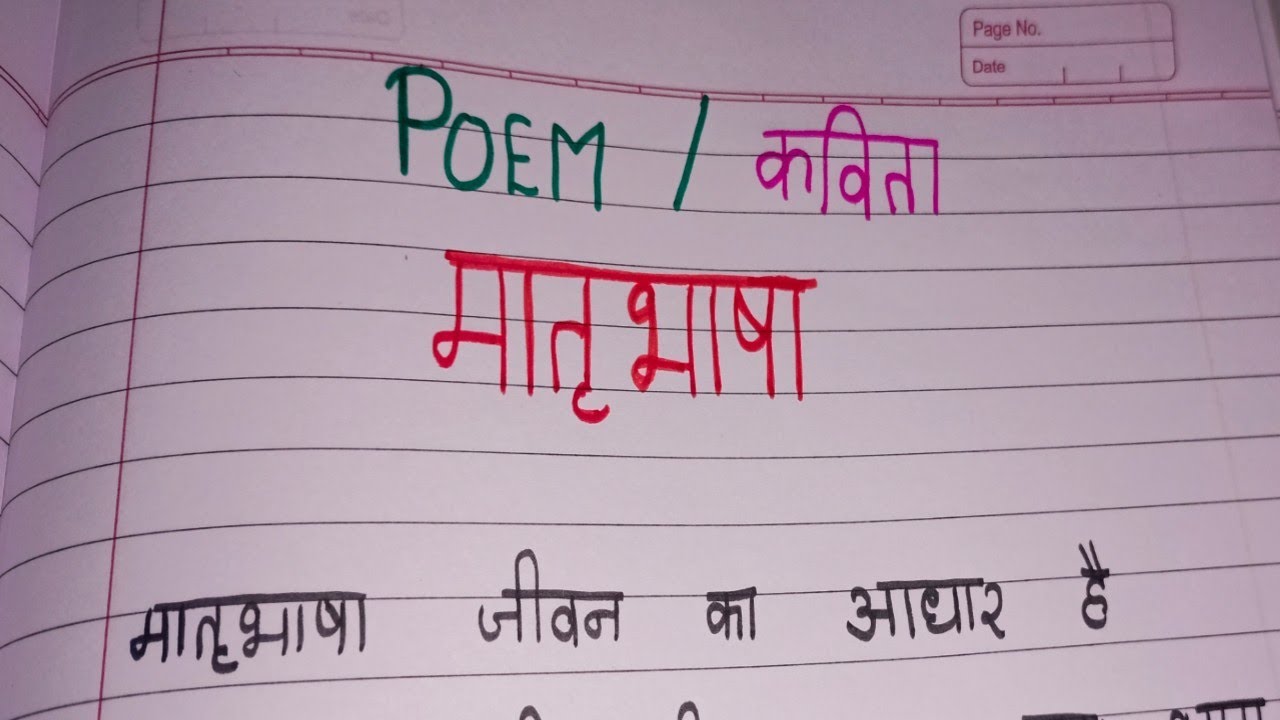 Page No.
Date
POEM / कविता
मातृभाषा
मातृभाषा जीवन का आधार है